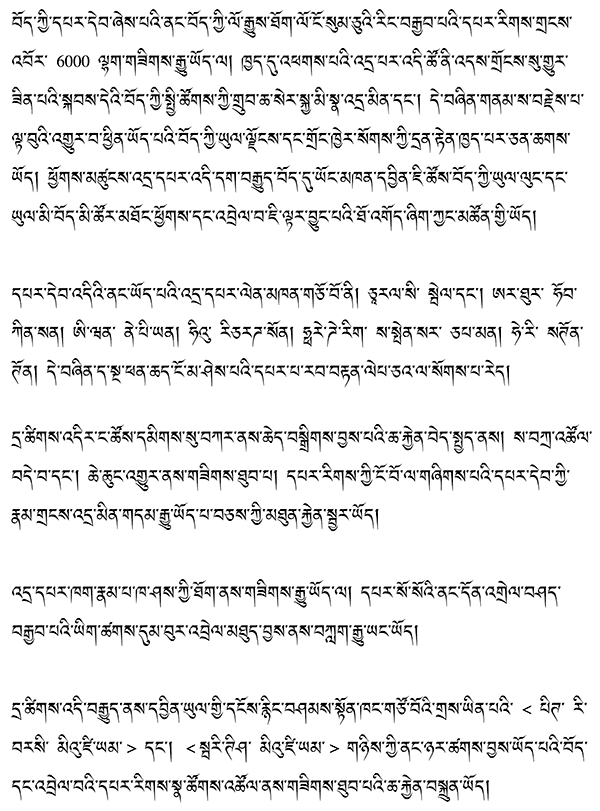 བོད་ཀྱི་དཔར་དེབ་ཞེས་པའི་ནང་བོད་ཀྱི་ལོ་རྒྱུས་ཐོག་ལོ་ངོ་སུམ་ཅུའི་རིང་བརྒྱབ་པའི་དཔར་རིགས་གྲངས་
འབོར་ 6000 ལྷག་གཟིགས་རྒྱུ་ཡོད་ལ། ཁྱད་དུ་འཕགས་པའི་འདྲ་པར་འདི་ཚོ་ནི་འདས་གྲོངས་སུ་གྱུར་
ཟིན་པའི་སྐབས་དེའི་བོད་ཀྱི་སྤྱི་ཚོགས་ཀྱི་གྲུབ་ཆ་སེར་སྐྱ་མི་སྣ་འདྲ་མིན་དང་། དེ་བཞིན་གནམ་ས་བརྗེས་པ་
ལྟ་བུའི་འགྱུར་བ་ཕྱིན་ཡོད་པའི་བོད་ཀྱི་ཡུལ་ལྗོངས་དང་གྲོང་ཁྱེར་སོགས་ཀྱི་དྲན་རྟེན་ཁྱད་པར་ཅན་ཆགས་
ཡོད། ཕྱོགས་མཚུངས་འདྲ་དཔར་འདི་དག་བརྒྱུད་བོད་དུ་ཡོང་མཁན་དབྱིན་ཇི་ཚོས་བོད་ཀྱི་ཡུལ་ལུང་དང་
ཡུལ་མི་བོད་མི་ཚོར་མཐོང་ཕྱོགས་དང་འབྲེལ་བ་ཇི་ལྟར་བྱུང་པའི་ཐོ་འགོད་ཞིག་ཀྱང་མཚོན་གྱི་ཡོད།
དཔར་དེབ་འདིའི་ནང་ཡོད་པའི་འདྲ་དཔར་ལེན་མཁན་གཙོ་བོ་ནི། ཅཱརལ་སི་ སྦེལ་དང་། ཨར་ཐུར་ ཧོབ་
ཀིན་སན། ཨི་ཝན་ ནེ་པི་ཡན། ཧིའུ་ རིཅརཊ་སོན། ཧྥྲེ་ཌེ་རིག་ ས་སྤེན་སར་ ཅཔ་མན། ཧེ་རི་ སཊོན་
ཊོན། དེ་བཞིན་ད་སྔ་ཕན་ཆད་ངོ་མ་ཤེས་པའི་དཔར་པ་རབ་བརྟན་ལེཔ་ཅའ་ལ་སོགས་པ་རེད།
དྲ་ཚིགས་འདིར་ང་ཚོས་དམིགས་སུ་བཀར་ནས་ཆེད་བསྒྲིགས་བྱས་པའི་ཆ་རྐྱེན་བེད་སྤྱད་ནས། ས་བཀྲ་འཚོལ་
བདེ་བ་དང་། ཆེ་ཆུང་འགྱུར་ནས་གཟིགས་ཐུབ་པ། དཔར་རིགས་ཀྱི་ངོ་བོ་ལ་གཞིགས་པའི་དཔར་དེབ་ཀྱི་
རྣམ་གྲངས་འདྲ་མིན་གདམ་རྒྱུ་ཡོད་པ་བཅས་ཀྱི་མཐུན་རྐྱེན་སྦྱར་ཡོད།
འདྲ་དཔར་ཁག་རྣམ་པ་ཁ་ཤས་ཀྱི་ཐོག་ནས་གཟིགས་རྒྱུ་ཡོད་ལ། དཔར་སོ་སོའི་ནང་དོན་འགྲེལ་བཤད་
བརྒྱབ་པའི་ཡིག་ཚགས་དུམ་བུར་འབྲེལ་མཐུད་བྱས་ནས་བཀླག་རྒྱུ་ཡང་ཡོད།
དྲ་ཚིགས་འདི་བརྒྱུད་ནས་དབྱིན་ཡུལ་གྱི་དངོས་རྙིང་བཤམས་སྟོན་ཁང་གཙོ་བོའི་གྲས་ཡིན་པའི་ < པིཊ་ རི་
བརསི་ མིའུ་ཛི་ཡམ་ > དང་། < སྦྲི་ཊིཤ་ མིའུ་ཛི་ཡམ་ > གཉིས་ཀྱི་ནང་ཉར་ཚགས་བྱས་ཡོད་པའི་བོད་
དང་འབྲེལ་བའི་དཔར་རིགས་སྣ་ཚོགས་འཚོལ་ནས་གཟིགས་ཐུབ་པའི་ཆ་རྐྱེན་བསྐྲུན་ཡོད།